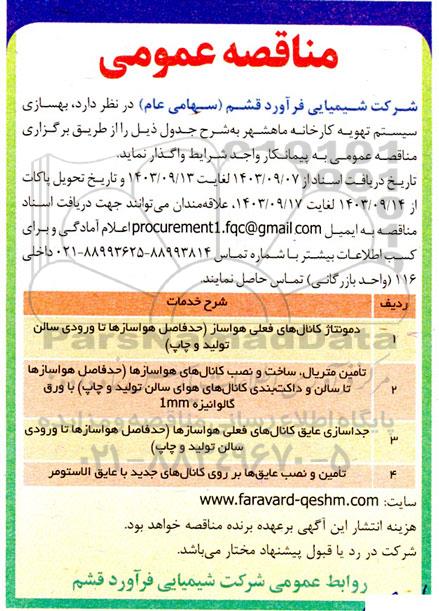 مناقصه عمومی
شرکت شیمیایی فرآورد قشم (سهامی عام) در نظر دارد، بهسازی
سیستم تهویه کارخانه ماهشهر به‌شرح جدول ذیل را از طریق برگزاری
مناقصه عمومی به پیمانکار واجد شرایط واگذار نماید.
تاریخ دریافت اسناد از ۱۴۰۳/۰۹/۰۷ لغایت ۱۴۰۳/۰۹/۱۳ و تاریخ تحویل پاکات
از ۱۴۰۳/۰۹/۱۴ لغایت ۱۴۰۳/۰۹/۱۷، علاقه‌مندان می‌توانند جهت دریافت اسناد
مناقصه به ایمیل procurement1.fqc@gmail.com اعلام آمادگی و برای
کسب اطلاعات بیشتر با شماره تماس ۸۸۹۹۳۸۱۴-۸۸۹۹۳۶۲۵-۰۲۱ داخلی
۱۱۶ (واحد بازرگانی) تماس حاصل نمایند.
ردیف شرح خدمات
۱ دمونتاژ کانال‌های فعلی هواساز (حدفاصل هواسازها تا ورودی سالن
تولید و چاپ)
۲ تأمین متریال، ساخت و نصب کانال‌های هواسازها (حدفاصل هواسازها
تا سالن و داکت‌بندی کانال‌های هوای سالن تولید و چاپ) با ورق
گالوانیزه 1mm
۳ جداسازی عایق کانال‌های فعلی هواسازها (حدفاصل هواسازها تا ورودی
سالن تولید و چاپ)
۴ تأمین و نصب عایق‌ها بر روی کانال‌های جدید با عایق الاستومر
سایت: www.faravard-qeshm.com
هزینه انتشار این آگهی برعهده برنده مناقصه خواهد بود.
شرکت در رد یا قبول پیشنهاد مختار می‌باشد.
روابط عمومی شرکت شیمیایی فرآورد قشم
ParsNamadData